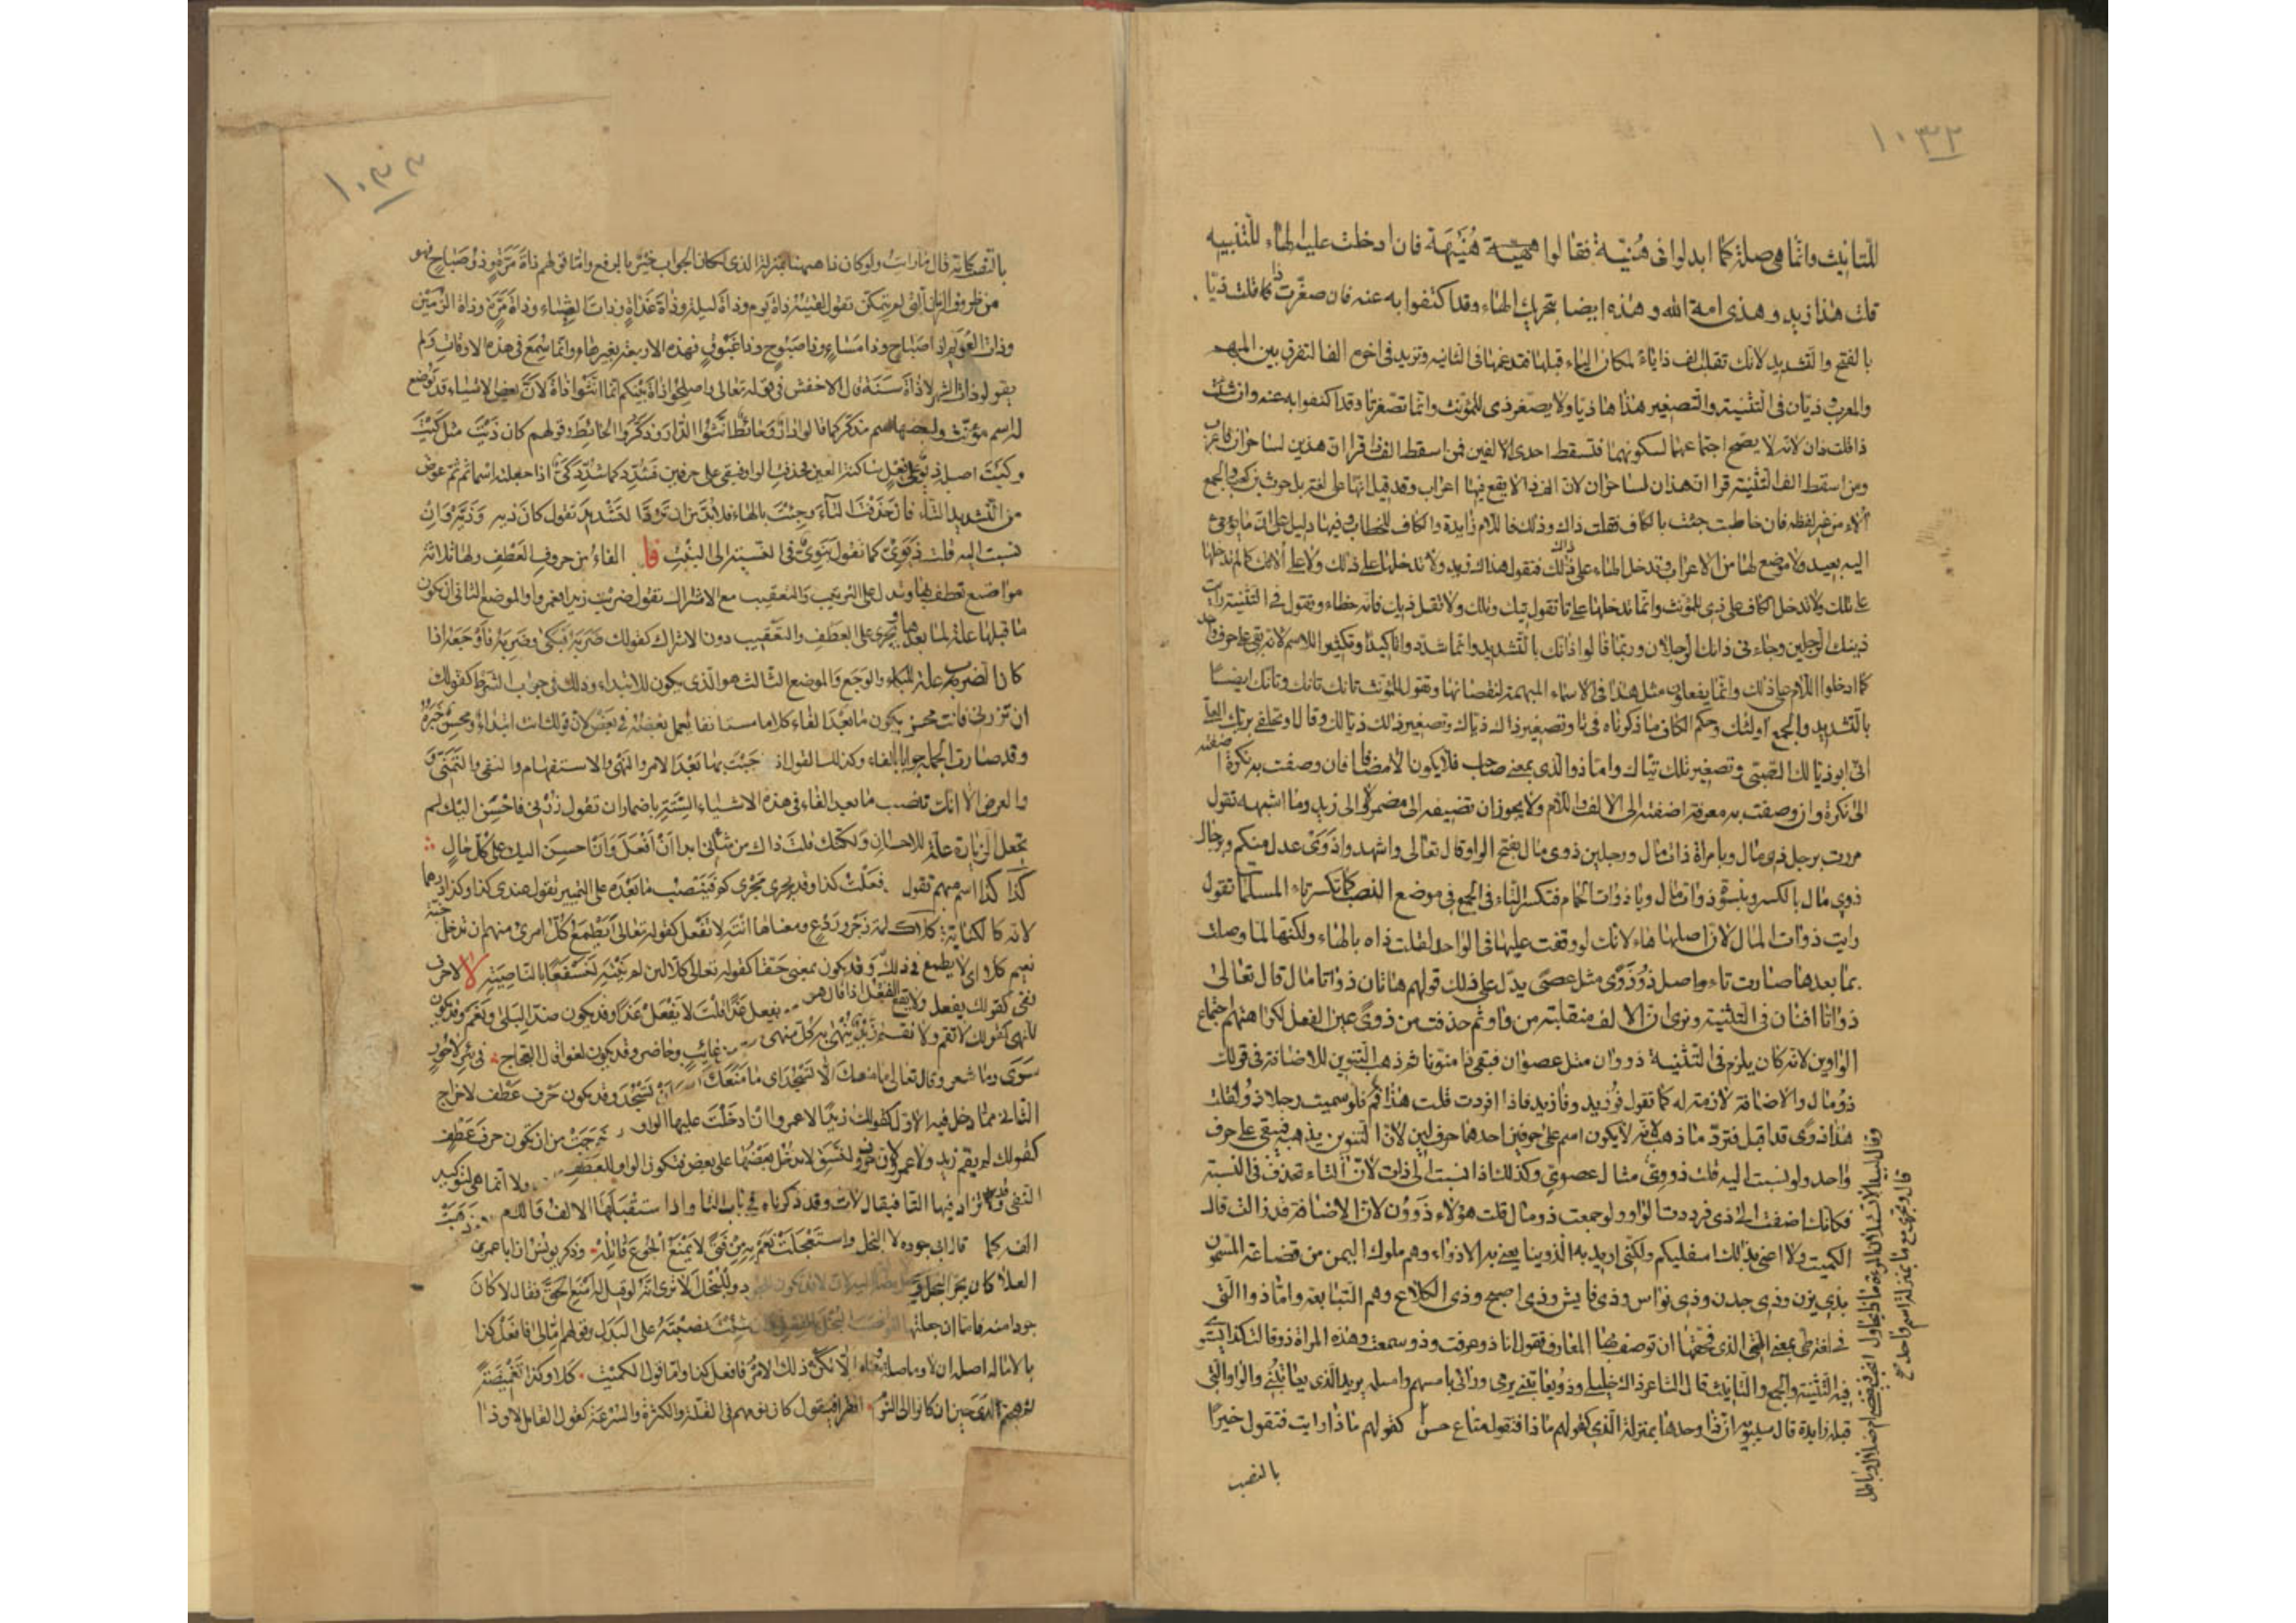 ١٠٣٢
للتانيث وانما هى صلة كما ابدلوا فى هُنيّة فقالوا هُنَيهَة فان ادخلت عليه الهاء للتنبيه
قلت هذا زيد وهذى امة الله وهذه ايضا بتحريك الهاء وقد اكتفوا به عنه فان صغّرت ذا قلت ذيّا
بالفتح والتشديد لانك تقلب الف ذا ياء لمكان الياء قبلها فتدغمها فى الثانية وتزيد فى اخره الفا لتفرق بين المبهم
والمعرب وذيّان فى التثنية والتصغير هذا هاذيا ولا يصغر ذى للمؤنث وانما تصغر تا وقد اكتفوا به عنه وان ثنيت
ذا قلت ذان لانه لا يصح اجتماعهما لسكونهما فتسقط احدى الالفين فمن اسقط الف ذا قرا ان هذين لساحران فاعرب
ومن اسقط الف التثنية قرا ان هذان لساحران لان الف ذا لا يقع فيها اعراب وقد قيل انها على لغة بلحرث بن كعب والجمع
اُلاء من غير لفظه فان خاطبت جئت بالكاف فقلت ذاك وذلك فاللام زايدة والكاف للخطاب وفيها دليل على ان ما يومى
اليه بعيد ولا موضع لها من الاعراب وتدخل الهاء على ذاك فتقول هذاك زيد ولا تدخلها على ذلك ولا على اُلائك كما لم تدخلها
على تلك ولا تدخل الكاف على ذى للمؤنث وانما تدخلها على تا تقول تيك وتلك ولا تقل ذيك فانه خطاء وتقول فى التثنية رايت
ذينك الرجلين وجاءنى ذانك الرجلان وربما قالوا ذانّك بالتشديد وانما شددوا تاكيدا وتكثيرا للاسم لانه بقى على حرف واحد
كما ادخلوا اللام على ذلك وانما يفعلون مثل هذا فى الاسماء المبهمة لنقصانها وتقول للمؤنث تانك وتانّك ايضًا
بالتشديد والجمع اولئك وحكم الكاف ما ذكرناه فى تا وتصغير ذاك ذياك وتصغير ذلك ذيالك وقال او تحلفى بربك العلىّ
انى ابو ذيالك الصبىّ وتصغير تلك تيّاك واما ذو الذى بمعنى صاحب فلا يكون الا مضافا فان وصفت به نكرة اضفته
الى نكرة وان وصفت به معرفة اضفته الى الالف واللام ولا يجوز ان تضيفه الى مضمر ولا الى زيد وما اشبهه تقول
مررت برجل ذى مال وبامراة ذات مال ورجلين ذوى مال بفتح الواو وقال تعالى واشهدوا ذَوَىْ عدل منكم وبرجال
ذوى مال بالكسر وبنسوة ذوات مال ويا ذوات الجمام فتكسر التاء فى الجمع فى موضع النصب كما تكسر تاء المسلمات تقول
رايت ذوات المال لان اصلها هاء لانك لو وقفت عليها فى الواحد لقلت ذاه بالهاء ولكنها لما وصلت
بما بعدها صارت تاء واصل ذو ذَوًى مثل عصًى يدل على ذلك قولهم هاتان ذواتا مال قال تعالى
ذواتا افنان فى التثنية ونرى ان الالف منقلبة من واو ثم حذفت من ذوًى عين الفعل لكراهتهم اجتماع
الواوين لانه كان يلزم فى التثنية ذووان مثل عصوان فبقى ذا منونا ثم ذهب التنوين للاضافة فى قولك
ذو مال والاضافة لازمة له كما تقول فو زيد وفا زيد فاذا افردت قلت هذا فم فلو سميت رجلا ذو لقلت
هذا ذوًى قد اقبل فترد ما ذهب لانه لا يكون اسم على حرفين احدهما حرف لين لان التنوين يذهبه فيبقى على حرف
واحد ولو نسبت اليه قلت ذووىّ مثال عصوىّ وكذلك اذا نسبت الى ذات لان التاء تحذف فى النسبة
فكانك اضفت الى ذى فرددت الواو ولو جمعت ذو مال قلت هؤلاء ذَوُون لان الاضافة قد زالت قال
الكميت ولا اعنى بذلك اسفليكم ولكنى اريد به الذوينا يعنى به الاذواء وهم ملوك اليمن من قضاعة المسمون
بذى يزن وذى جدن وذى نواس وذى فايش وذى اصبح وذى الكلاع وهم التبابعة واما ذو التى
فى لغة طى بمعنى الذى فحقها ان توصف بها المعارف تقول انا ذو عرفت وذو سمعت وهذه المراة ذو قالت كذا يستوى
فيه التثنية والجمع والتانيث قال الشاعر ذاك خليلى وذو يعاتبنى يرمى ورائى بامسهم وامسلمه يريد الذى يعاتبنى والواو التى
قبله زايدة قال سيبويه ان ذا وحدها بمنزلة الذى كقولهم ماذا فتقول متاع حسن كقولهم ماذا رايت فتقول خيرًا
بالنصب
قال لبيد الا تسئلان المرء ماذا يحاول انحب فيقضى ام ضلال وباطل
قال ويجرى مع ما بمنزلة اسم واحد
١٠٣٣
بالنصب كانه قال ما رايت ولو كان ذا ههنا بمنزلة الذى لكان الجواب خير بالرفع واما قولهم ذاة مَرّة وذو صَباح فهو
من ظروف الزمان التى لم يتمكن تقول لقيته ذاة يوم وذاة ليلة وذاة غداةٍ وذات العِشاء وذاة مرّة وذاة الزُمَين
وذات العُوَيم وذا صَباح وذا مَساء وذا صَبوح وذا غَبوقٍ فهذه الاربعة بغير هاء وانما سُمِعَ فى هذه الاوقات ولم
يقولوا ذات شهر ولا ذاة سَنَة قال الاخفش فى قوله تعالى واصلحوا ذاة بينكم انما انّثوا ذاة لان بعض الاشياء قد يوضع
له اسم مؤنّث ولبعضها اسم مذكر كما قالوا دار وحائط انّثوا الدّار وذكّروا الحائط وقولهم كان ذَيتَ مثل كَيتَ
وكيت اصله ذيو على فعل ساكنة العين فحذفت الواو فبقى على حرفين فشُدّد كما شُدّد كىّ اذا جعلته اسما ثم عوض
من التشديد التاء فان حذفت التاء وجئت بالهاء فلابد من ان تردّ التشديد تقول كان ذيه وذيه وان
نسبت اليه قلت ذيوىّ كما تقول بنوىّ فى النسبة الى البنت فا الفاء من حروف العطف ولها ثلاثة
مواضع تعطف بها وتدل على الترتيب والتعقيب مع الاشراك تقول ضربت زيدا فعمروا والموضع الثانى ان يكون
ما قبلها علة لما بعدها وتجرى على العطف والتعقيب دون الاشراك كقولك ضربه فبكى وضربه فاوجعه اذا
كان الضرب علة البكاء والوجع والموضع الثالث هو الذى يكون للابتداء وذلك فى جواب الشرط كقولك
ان تزرنى فانت محسن يكون ما بعد الفاء كلاما مستانفا يعمل بعضه فى بعض لان قولك انت ابتداء ومحسن خبره
وقد صارت الجملة جوابا بالفاء وكذلك القول اذا جئت بها بعد الامر والنهى والاستفهام والنفى والتمنّى
والعرض الا انك تنصب ما بعد الفاء فى هذه الاشياء الستة باضمار ان تقول زُرنى فاحسِنَ اليك لم
تجعل الزيارة علة للاحسان ولكنك قلت ذاك من شانى ابدا ان افعل وانا احسن اليك على كل حال
كذا كذا اسم مبهم تقول فعلت كذا وقد يجرى مجرى كم فينتصب ما بعده على التمييز تقول عندى كذا وكذا درهما
لانه كالكناية كلا كلمة زجر وردع ومعناها انته لا تفعل كقوله تعالى ايطمع كل امرئ منهم ان يدخل جنة
نعيم كلا اى لا يطمع فى ذلك وقد يكون بمعنى حقا كقوله تعالى كلا لئن لم ينته لنسفعا بالناصية لا لا حرف
نفى كقولك يفعل ولا يقع الفعل اذا قال هو يفعل غدًا قلت لا يفعل غدا وقد يكون ضدّا لبلى ونعم وقد يكون
للنهى كقولك لا تقم ولا يقم زيد ينهى به كل منهى من غائب وحاضر وقد يكون لغوا قال العجاج فى بئر لا حُورٍ
سَرَى وما شعر وقال تعالى ما منعك الّا تسجد اى ما منعك ان تسجد وقد يكون حرف عطف لاخراج
الثانى مما دخل فيه الاول كقولك زيدًا لا عمروا فان ادخلت عليها الواو خرجت من ان تكون حرف عطفٍ
كقولك لم يقم زيد ولا عمرو لان حروف النسق لا يدخل بعضها على بعض فتكون الواو للعطف ولا انما هى لتوكيد
النفى وقد تزاد فيها التاء فيقال لات وقد ذكرناه فى باب التاء واذا استقبلها الالف واللام ذهبت
الفه كما قال ابى جوده لا البخل واستعجلت نعم به من فتى لا يمنع الجوع قاتله وذكر يونس ان ابا عمرو بن
العلا كان يجر البخل
جودا منه فاما ان جعلتها نصبته على البدل وقولهم امّا لى فافعل كذا
بالاماله اصله ان لا وما صلة ومعناه الّا يكن ذلك الامر فافعل كذا واما قول الكميت كلا وكذا تغميضةً